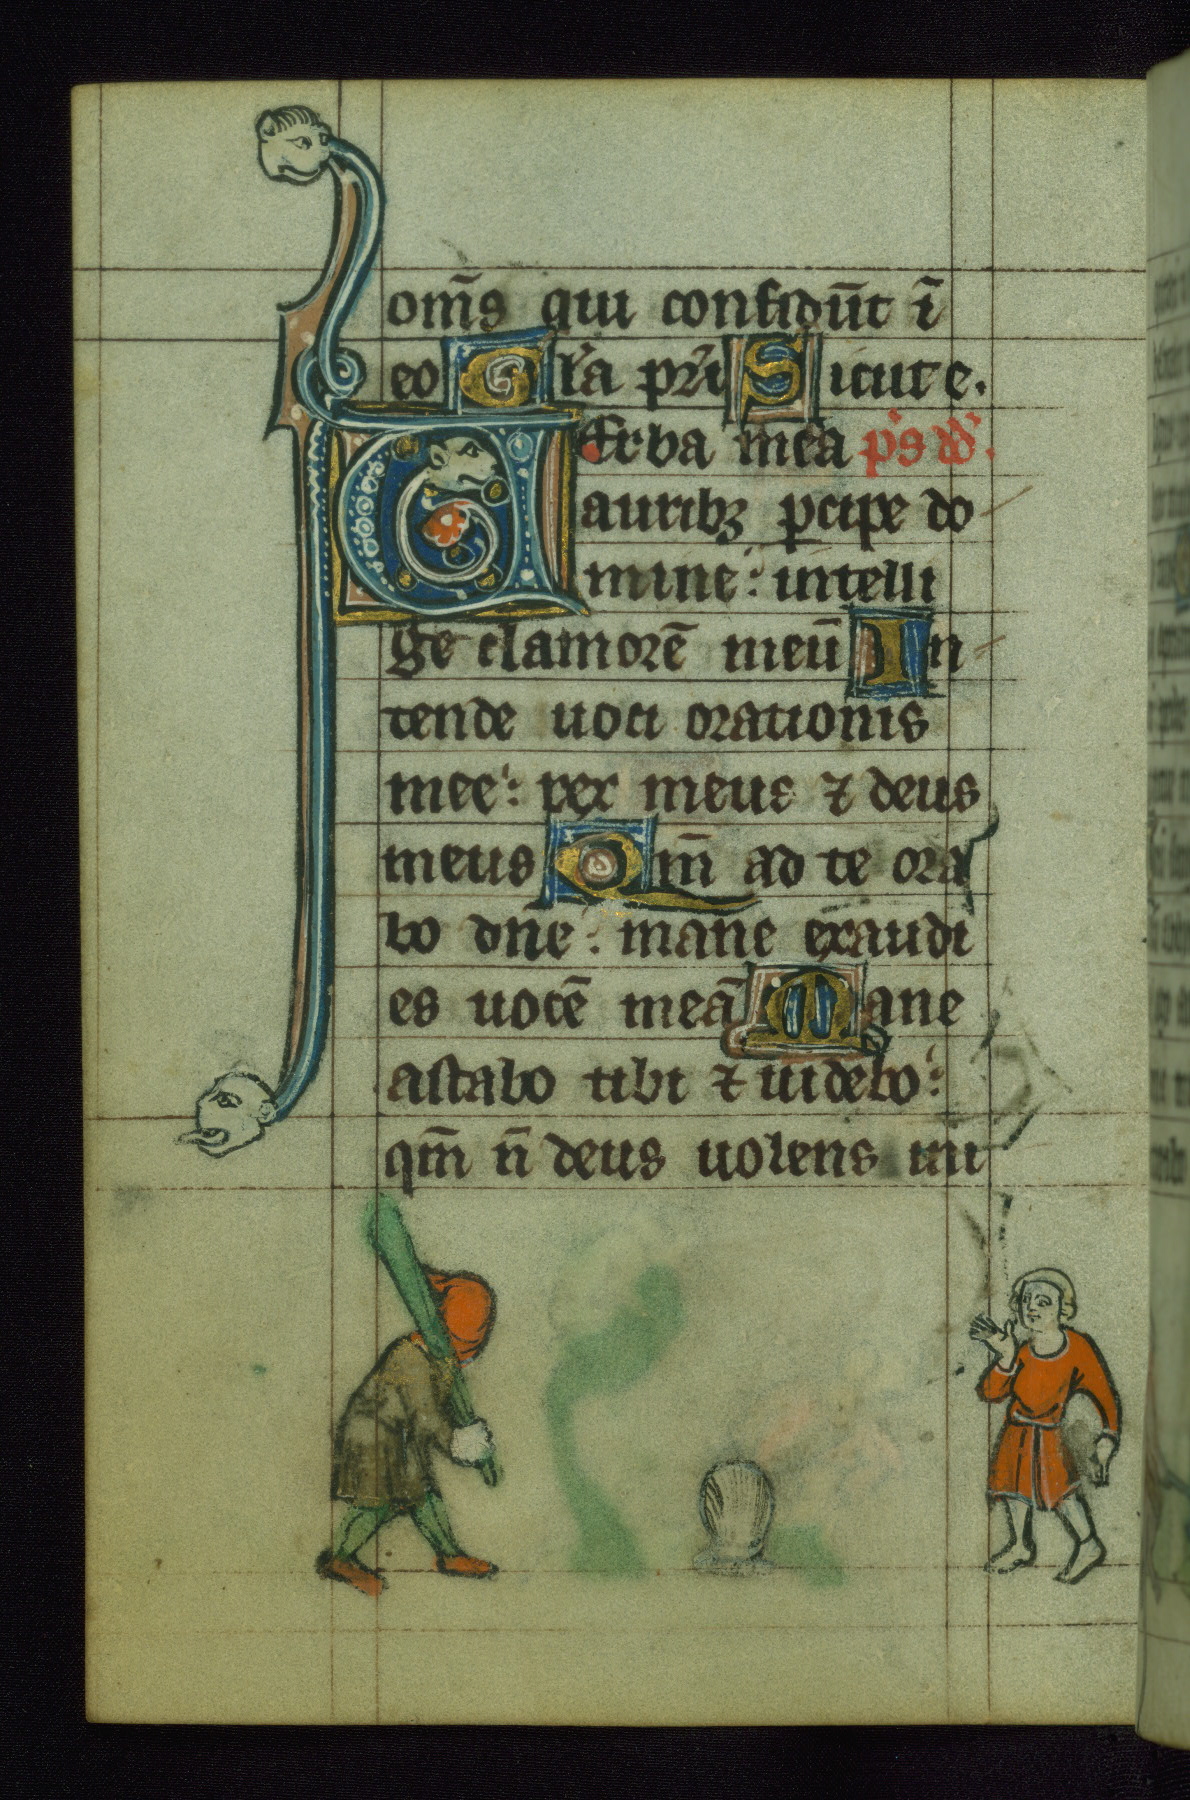 om̄s qui confidūt ī
eo Gl'a pr̄i Sicut e.
VErba mea p's dd̄.
auribꝫ ꝑcipe do
mine: intelli
ge clamorē meū In
tende uoci orationis
mee: rex meus ⁊ deus
meus Qm̄ ad te ora
bo dn̄e: mane exaudi
es uocē meā Mane
astabo tibi ⁊ uidebo:
qm̄ n̄ deus uolens ini